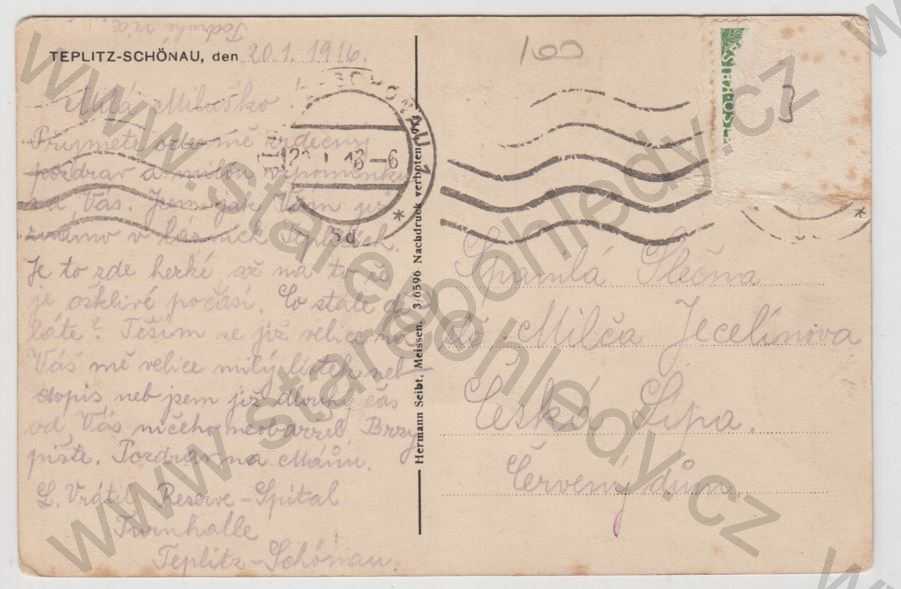 TEPLITZ-SCHÖNAU, den 20.1.1916.
Milá Miluško!
Přijměte odemě srdečný
pozdrav a milou vzpomínku
na Vás. Jsem jak Vám již
známo v lázních Teplicích.
Je to zde hezké až na to že
je ošklivé počasí. Co stále dě-
láte? Těším se již velice na
Váš mě velice milý lístek neb
dopis neb jsem již dlouhý čas
od Vás ničeho neobdržel Brzy
pište. Pozdrav na Mámu.
L. Vrátil Reserve-Spital
Turnhalle
Teplitz-Schönau.
Hermann Seibt, Meissen, 3.6596 Nachdruck verboten
100
Spanilá Slečna
Milča Jecelínova
Česká Lípa.
Červený dům
www.starepohledy.cz
www.starepohledy.cz